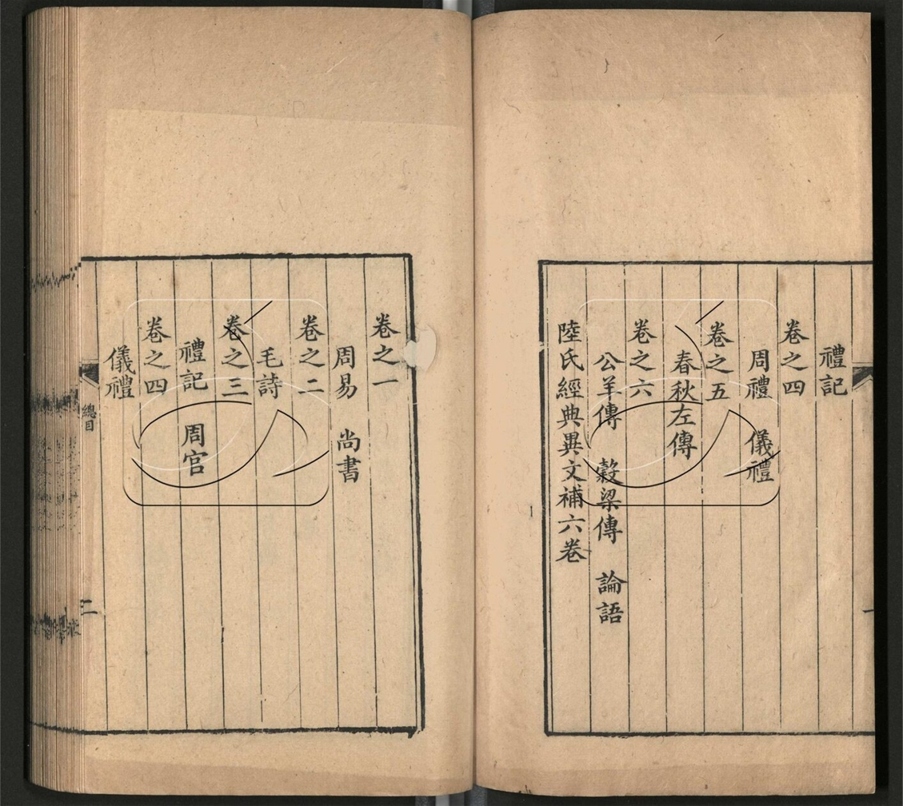 禮記
卷之四
周禮 儀禮
卷之五
春秋左傳
卷之六
公羊傳 穀梁傳 論語
陸氏經典異文補六卷
卷之一
周易 尚書
卷之二
毛詩
卷之三
禮記 周官
卷之四
儀禮
總目
二